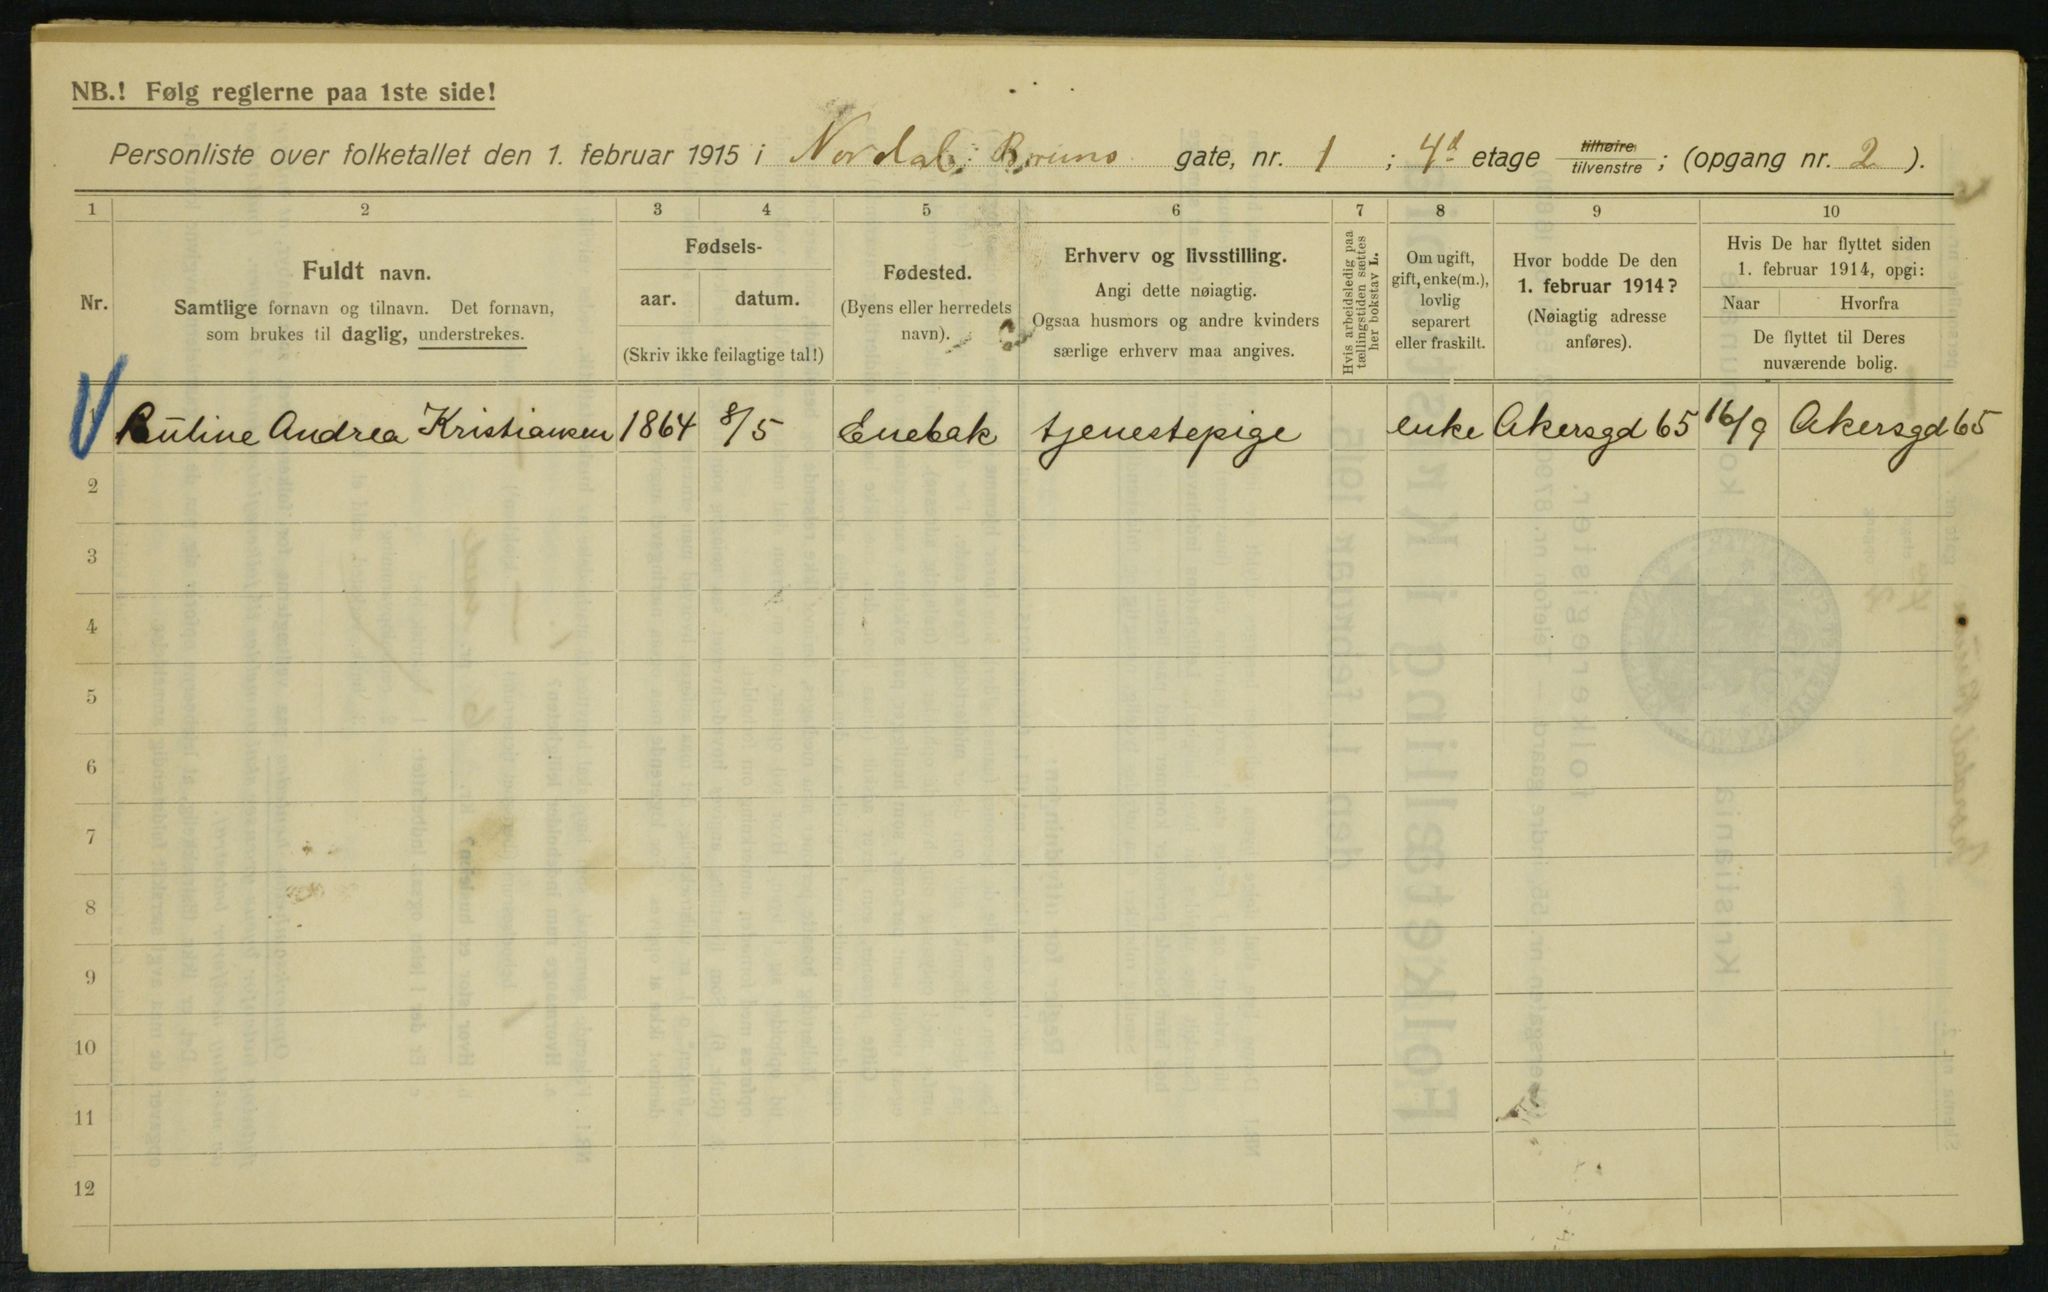 NB.! Følg reglerne paa 1ste side!
Personliste over folketallet den 1. februar 1915 i Nordal Bruns gate, nr. 1 ; 4d etage tilhøire tilvenstre ; (opgang nr. 2 ).
1 2 3 4 5 6 7 8 9 10
Nr.
Fuldt navn.
Samtlige fornavn og tilnavn. Det fornavn,
som brukes til daglig, understrekes.
Fødsels-
aar. datum.
(Skriv ikke feilagtige tal!)
Fødested.
(Byens eller herredets
navn).
Erhverv og livsstilling.
Angi dette nøiagtig.
Ogsaa husmors og andre kvinders
særlige erhverv maa angives.
Hvis arbeidsledig paa
tællingstiden sættes
her bokstav L.
Om ugift,
gift, enke(m.),
lovlig
separert
eller fraskilt.
Hvor bodde De den
1. februar 1914?
(Nøiagtig adresse
anføres).
Hvis De har flyttet siden
1. februar 1914, opgi:
Naar Hvorfra
De flyttet til Deres
nuværende bolig.
1 Pauline Andrea Kristiansen 1864 8/5 Enebak tjenestepige enke Akersgd 65 16/9 Akersgd 65
2
3
4
5
6
7
8
9
10
11
12